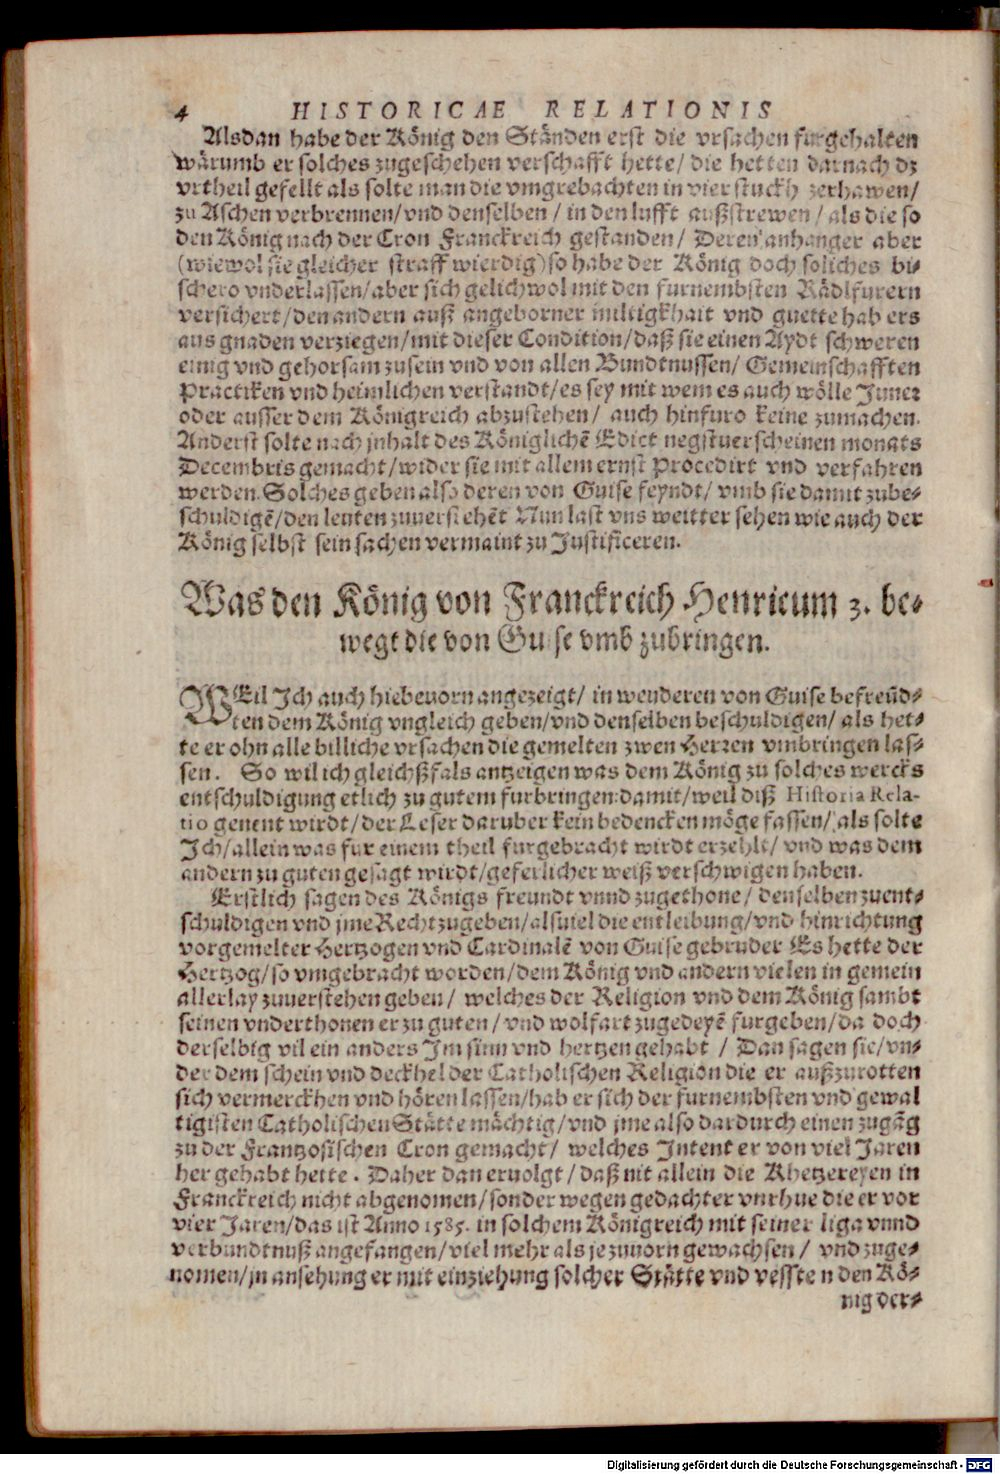 4 HISTORICAE RELATIONIS
Alsdan habe der König den Ständen erst die vrsachen furgehalten
wärumb er solches zugeschehen verschafft hette/ die hetten darnach dz
vrtheil gefellt als solte man die vmgrebachten in vier stuckh zerhawen/
zu Aschen verbrennen/vnd denselben / in den lufft außstrewen / als die so
den König nach der Cron Franckreich gestanden/ Deren anhanger aber
(wiewol sie gleicher straff wierdig) so habe der König doch soliches bi-
schero vnderlassen/aber sich gelichwol mit den furnembsten Rädlfurern
versichert/den andern auß angeborner miltigkhait vnd guette hab ers
aus gnaden verziegen/mit dieser Condition/daß sie einen Aydt schweren
einig vnd gehorsam zusein vnd von allen Bundtnussen/ Gemeinschafften
Practiken vnd heimlichen verstandt/es sey mit wem es auch wölle Jnner
oder ausser dem Königreich abzustehen/ auch hinfuro keine zumachen.
Anderst solte nach jnhalt des Königlichē Edict negstuerscheinen monats
Decembris gemacht/wider sie mit allem ernst procedirt vnd verfahren
werden. Solches geben also deren von Guise feyndt/ vmb sie damit zube-
schuldigē/den leuten zuuerstehēt Nun last vns weitter sehen wie auch der
König selbst sein sachen vermaint zu Justificeren.
Was den König von Franckreich Henricum 3. be-
wegt die von Guise vmb zubringen.
WEil Jch auch hiebeuorn angezeigt/ in we deren von Guise befreūd-
ten dem König vngleich geben/vnd denselben beschuldigen/ als het-
te er ohn alle billiche vrsachen die gemelten zwen Herren vmbringen las-
sen. So wil ich gleichßfals antzeigen was dem König zu solches wercks
entschuldigung etlich zu gutem furbringen:damit/weil diß Historia Rela-
tio genent wirdt/der Leser daruber kein bedencken möge fassen/ als solte
Jch/allein was fur einem theil furgebracht wirdt erzehlt/ vnd was dem
andern zu guten gesagt wirdt/geferlicher weiß verschwigen haben.
Erstlich sagen des Königs freundt vnnd zugethone/ denselben zuent-
schuldigen vnd jme Recht zugeben/alsuiel die entleibung/vnd hinrichtung
vorgemelter Hertzogen vnd Cardinalē von Guise gebruder Es hette der
Hertzog/so vmgebracht worden/dem König vnd andern vielen in gemein
allerlay zuuerstehen geben/ welches der Religion vnd dem König sambt
seinen vnderthonen er zu guten/ vnd wolfart zugedeyē furgeben/da doch
derselbig vil ein anders Jm sinn vnd hertzen gehabt / Dan sagen sie/vn-
der dem schein vnd deckhel der Catholischen Religion die er außzurotten
sich vermerckhen vnd hören lassen/hab er sich der furnembsten vnd gewal
tigisten Catholischen Stätte mächtig/vnd jme also dardurch einen zugāg
zu der Frantzosischen Cron gemacht/ welches Jntent er von viel Jaren
her gehabt hette. Daher dan eruolgt/daß nit allein die Khetzereyen in
Franckreich nicht abgenomen/sonder wegen gedachter vnrhue die er vor
vier Jaren/das ist Anno 1585. in solchem Königreich mit seiner liga vnnd
verbundtnuß angefangen/viel mehr als je zuuorn gewachsen/ vnd zuge-
nomen/jn ansehung er mit einziehung solcher Stätte vnd vessten den Kö-
nig der-
Digitalisierung gefördert durch die Deutsche Forschungsgemeinschaft - DFG